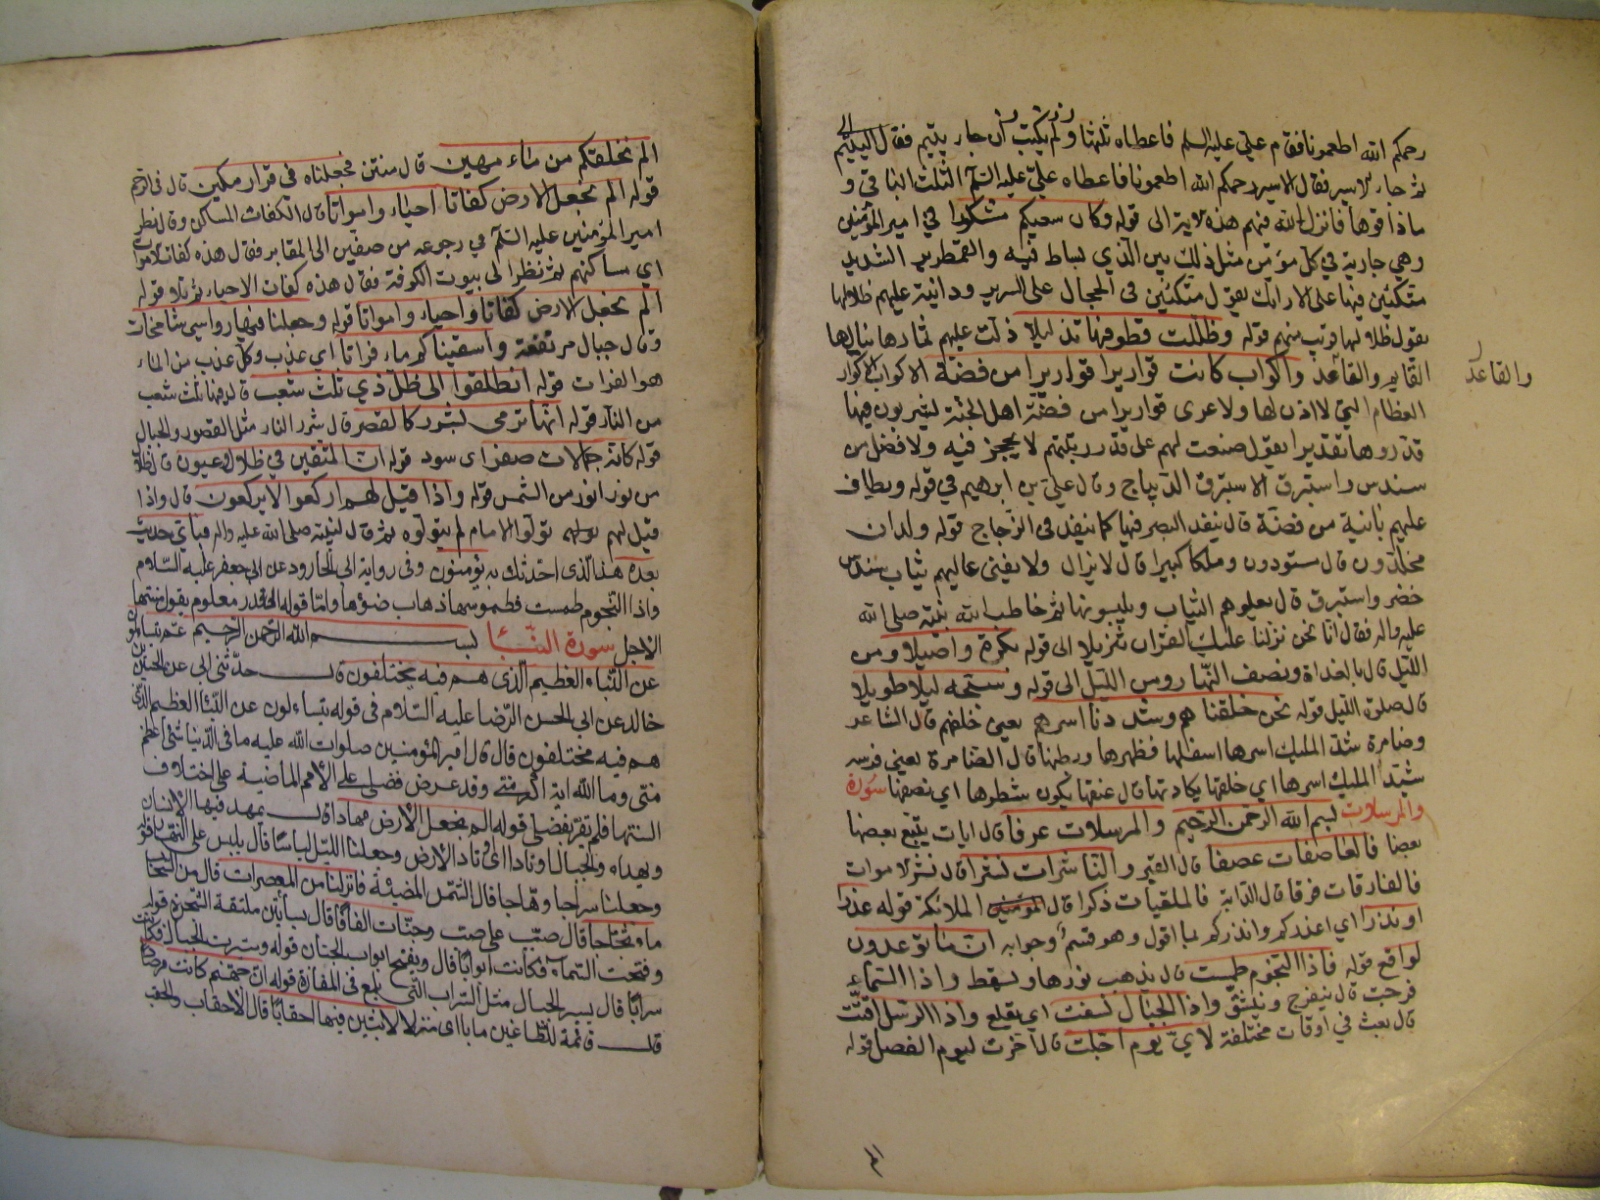 رحمكم الله اطعمونا فقام علي عليه السلم فاعطاه ثلثها ولم يلبث ان جاء يتيم فقال اليتيم
ثم جاء الاسير فقال الاسير رحمكم الله اطعمونا فاعطاه عليّ عليه السّلم الثلث الباقي و
ما ذاقوها فانزل الله فيهم هذه الاية الى قوله وكان سعيكم مشكورا في امير المؤمنين
وهي جارية في كل مؤمن مثل ذلك بين الّذي لباط فيه والقمطرير الشديد
متكئين فيها على الارائك يقول متكئين في الحجال على السرير ودانية عليهم ظلالها
يقول ظلالها قريب منهم قوله وظللت قطوفها تذليلا ذلت عليهم ثمارها ينالها
القايم والقاعد واكواب كانت قواريرا قواريرا من فضة الاكواب الاكواز
والقاعد
العظام التي لا اذن لها ولا عرى قواريرا من فضّة اهل الجنّة يشربون فيها
قدروها تقديرا يقول صنعت لهم على قدر ريتهم لا يحجز فيه ولا فضل من
سندس واستبرق الاستبرق الدّيباج وقال علي بن ابرهيم في قوله ويطاف
عليهم بانية من فضّة قال ينفذ البصر فيها كما ينفذ في الزجاج قوله ولدان
مخلّدون قال مستورون وملكا كبيرا قال لا يزال ولا يفنى عاليهم ثياب سندس
خضر واستبرق قال يعلوهم الثياب ويلبسونها ثم خاطب الله نبيّه صلى الله
عليه واله فقال انا نحن نزلنا عليك القران تنزيلا الى قوله بكرة واصيلا ومن
الليل قال بالغداة ونصف النّهار ومن الليل الى قوله وسبّحه ليلا طويلا
قال صلوة الليل قوله نحن خلقناهم وشددنا اسرهم يعني خلقهم قال الشاعر
وضامرة شدّ المليك اسرها اسفلها فظهرها وبطنها قال الضامرة يعني فرسه
شدّ المليك اسرها اي خلقها يكاد تهاقال عنقها يكون شطرها اي نصفها سورة
والمرسلات بسم الله الرحمن الرحيم والمرسلات عرفا قال ايات يتّبع بعضها
بعضا فالعاصفات عصفا قال القبر والنّاشرات نشرا قال نشر الاموات
فالفارقات فرقا قال الدابة فالملقيات ذكرا قال الملائكة قوله عذرا
او نذرا اي اعذركم وانذركم بما اقول وهو قسم وجوابه ان ما توعدون
لواقع قوله فاذا النّجوم طمست قال يذهب نورها ويسقط واذا السّماء
فرجت قال ينفرج وينشقّ واذا الجبال نسفت اي تقلع واذا الرسل اقّتت
قال بعث في اوقات مختلفة لايّ يوم اجّلت قال اخّرت ليوم الفصل قوله
الم
الم نخلقكم من ماء مهين قال منتن فجعلناه في قرار مكين قال في الرحم
قوله الم نجعل الارض كفاتا احياء وامواتا قال الكفات المساكن وقال نظر
امير المؤمنين عليه السّلم في رجوعه من صفين الى المقابر فقال هذه كفات الاموات
اي مساكنهم ثم نظر الى بيوت الكوفة فقال هذه كفات الاحياء ثم تلا قوله
الم نجعل الارض كفاتا احياء وامواتا قوله وجعلنا فيها رواسي شامخات
وقال جبال مرتفعة واسقيناكم ماء فراتا اي عذب وكل عذب من الماء
هو الفرات قوله انطلقوا الى ظلّ ذي ثلث شعب قال فيها ثلث شعب
من النّار قوله انّها ترمي بشرر كالقصر قال شرر النار مثل القصور والجبال
قوله كانّه جمالات صفر اى سود قوله انّ المتّقين في ظلال وعيون قال ظلال
من نور انور من الشمس قوله واذا قيل لهم اركعوا لا يركعون قال واذا
قيل لهم تولّوا الامام لم يتولّوه ثم قال لنبيّه صلى الله عليه واله فباي حديث
بعده هذا الّذي احدثك به يؤمنون وفي رواية ابي الجارود عن ابي جعفر عليه السّلام
واذا النّجوم طمست فطموسها ذهاب ضوؤها وامّا قوله الى قدر معلوم يقول منتهى
الاجل سورة النّبأ بسم الله الرّحمن الرّحيم عمّ يتساءلون
عن النّباء العظيم الّذي هم فيه مختلفون قال حدّثني ابي عن الحسين بن
خالد عن ابي الحسن الرّضا عليه السّلام في قوله يتساءلون عن النّبأ العظيم الّذي
هم فيه مختلفون قال قال امير المؤمنين صلوات الله عليه ما في الدّنيا شئ اعظم
منّي وما الله اية اكبر منّي وقد عرض فضلي على الأمم الماضية على اختلاف
السنتها فلم يقرّ بفضلي قوله الم نجعل الأرض مهادا قال يمهد فيها الإنسان
ويهداء والجبال اوتادا اى اوتاد الأرض وجعلنا الليل لباسًا قال يلبس على النّهار قوله
وجعلنا سراجا وهّاجا قال الشّمس المضيئة فانزلنا من المعصرات قال من السّحاب
ماء ثجّاجا قال صبّ على صبّ وجنّات الفافا قال بساتين ملتفّة الشّجرة قوله
وفتحت السّماء فكانت أبوابًا قال ويفتح ابواب الجنان قوله وسيّرت الجبال فكانت
سرابًا قال يسير الجبال مثل السّراب الّذي يلمع في المفازة قوله انّ جهنّم كانت مرصادا
قال قائمة للطّاغين مابا اى منزلا لابثين فيها احقابًا قال الأحقاب والحقب